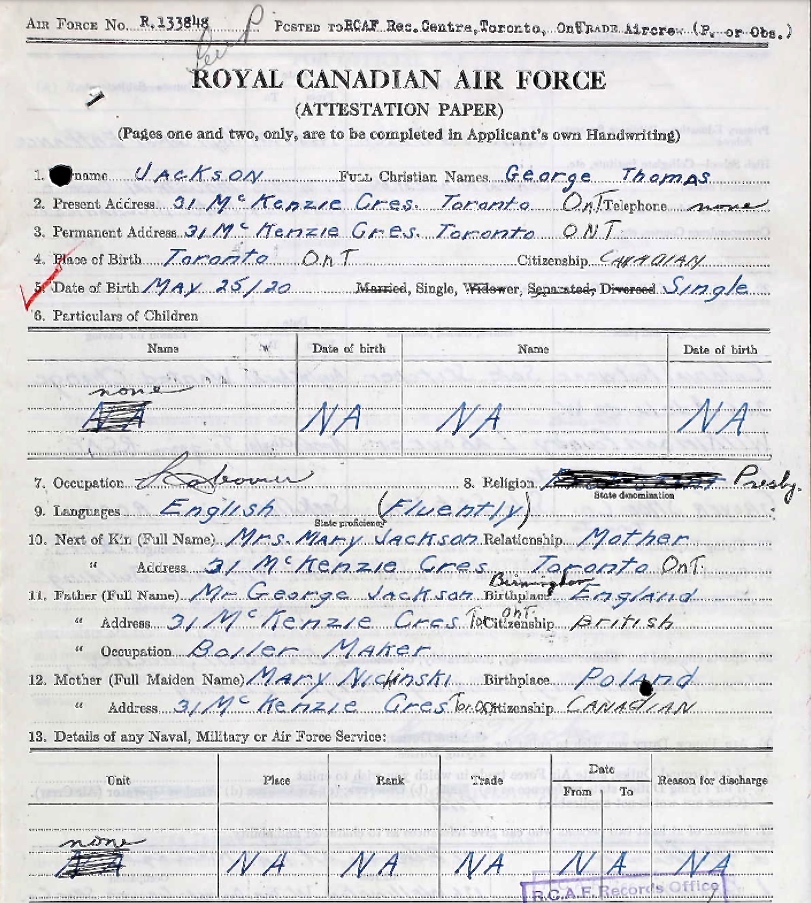 AIR FORCE NO. R.133848 POSTED TO RCAF Rec. Centre, Toronto, Ont TRADE Aircrew (P. or Obs.)
ROYAL CANADIAN AIR FORCE
(ATTESTATION PAPER)
(Pages one and two, only, are to be completed in Applicant's own Handwriting)
1. name JACKSON FULL CHRISTIAN NAMES George Thomas
2. Present Address 31 McKenzie Cres. Toronto OnT Telephone none
3. Permanent Address 31 McKenzie Cres. Toronto ONT
4. Place of Birth Toronto OnT Citizenship CANADIAN
5. Date of Birth MAY 25/20 Married, Single, Widower, Separated, Divorced Single
6. Particulars of Children
Name Date of birth Name Date of birth
none
NA NA NA NA
7. Occupation Labourer 8. Religion Presby.
State denomination
9. Languages English (Fluently)
State proficiency
10. Next of Kin (Full Name) Mrs. Mary Jackson Relationship Mother
" Address 31 McKenzie Cres Toronto OnT.
11. Father (Full Name) Mr George Jackson Birthplace Birmingham England
" Address 31 McKenzie Cres Tor. Ont. Citizenship British
" Occupation Boiler Maker
12. Mother (Full Maiden Name) Mary Nichinski Birthplace Poland
" Address 31 McKenzie Cres Citizenship CANADIAN
13. Details of any Naval, Military or Air Force Service:
Unit Place Rank Trade Date Reason for discharge
From To
none
NA NA NA NA NA NA
R.C.A.F. Records Office